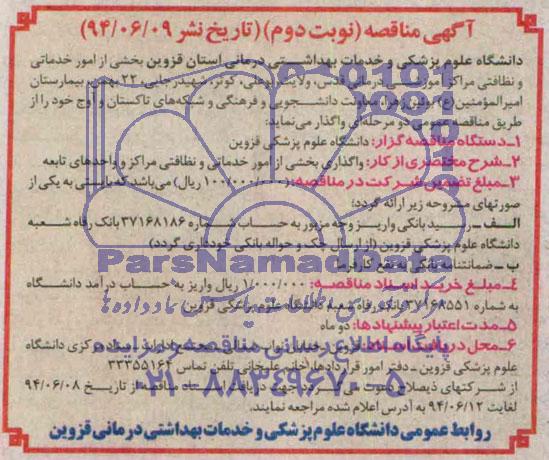 آگهی مناقصه (نوبت دوم) (تاریخ نشر ۹۴/۰۶/۰۹)
دانشگاه علوم پزشکی و خدمات بهداشتی درمانی استان قزوین بخشی از امور خدماتی
و نظافتی مراکز آموزشی درمانی قدس، ولایت، بوعلی، کوثر، شهیدرجایی، ۲۲ بهمن، بیمارستان
امیرالمؤمنین(ع) بوئین زهرا، معاونت دانشجویی و فرهنگی و شبکه‌های تاکستان و آوج خود را از
طریق مناقصه عمومی دو مرحله‌ای واگذار می‌نماید:
۱ـ دستگاه مناقصه گزار: دانشگاه علوم پزشکی قزوین
۲ـ شرح مختصری از کار: واگذاری بخشی از امور خدماتی و نظافتی مراکز و واحدهای تابعه
۳ـ مبلغ تضمین شرکت در مناقصه: (۱۰۰/۰۰۰/۰۰۰ ریال) می‌باشد که بایستی به یکی از
صورتهای مشروحه زیر ارائه گردد:
الف ـ رسید بانکی واریز وجه مزبور به حساب شماره ۳۷۱۶۸۱۸۶ بانک رفاه شعبه
دانشگاه علوم پزشکی قزوین (از ارسال چک و حواله بانکی خودداری گردد)
ب ـ ضمانتنامه بانکی به نفع کارفرما
۴ـ مبلغ خرید اسناد مناقصه: ۱/۰۰۰/۰۰۰ ریال واریز به حساب درآمد دانشگاه
به شماره ۳۷۱۶۸۵۵۱ بانک رفاه شعبه دانشگاه علوم پزشکی قزوین
۵ـ مدت اعتبار پیشنهادها: دو ماه
۶ـ محل دریافت اسناد: قزوین ـ خیابان نواب شمالی ـ مجتمع ادارات ـ ستاد مرکزی دانشگاه
علوم پزشکی قزوین ـ دفتر امور قراردادها، خانم علیخانی تلفن تماس ۳۳۳۵۵۱۶۲
از شرکتهای ذیصلاح دعوت می‌گردد جهت دریافت اسناد مناقصه از تاریخ ۹۴/۰۶/۰۸
لغایت ۹۴/۰۶/۱۲ به آدرس اعلام شده مراجعه نمایند.
روابط عمومی دانشگاه علوم پزشکی و خدمات بهداشتی درمانی قزوین
ParsNamadData
پایگاه اطلاع رسانی مناقصه و مزایده
۰۲۱-۸۸۳۴۹۶۷۰-۵